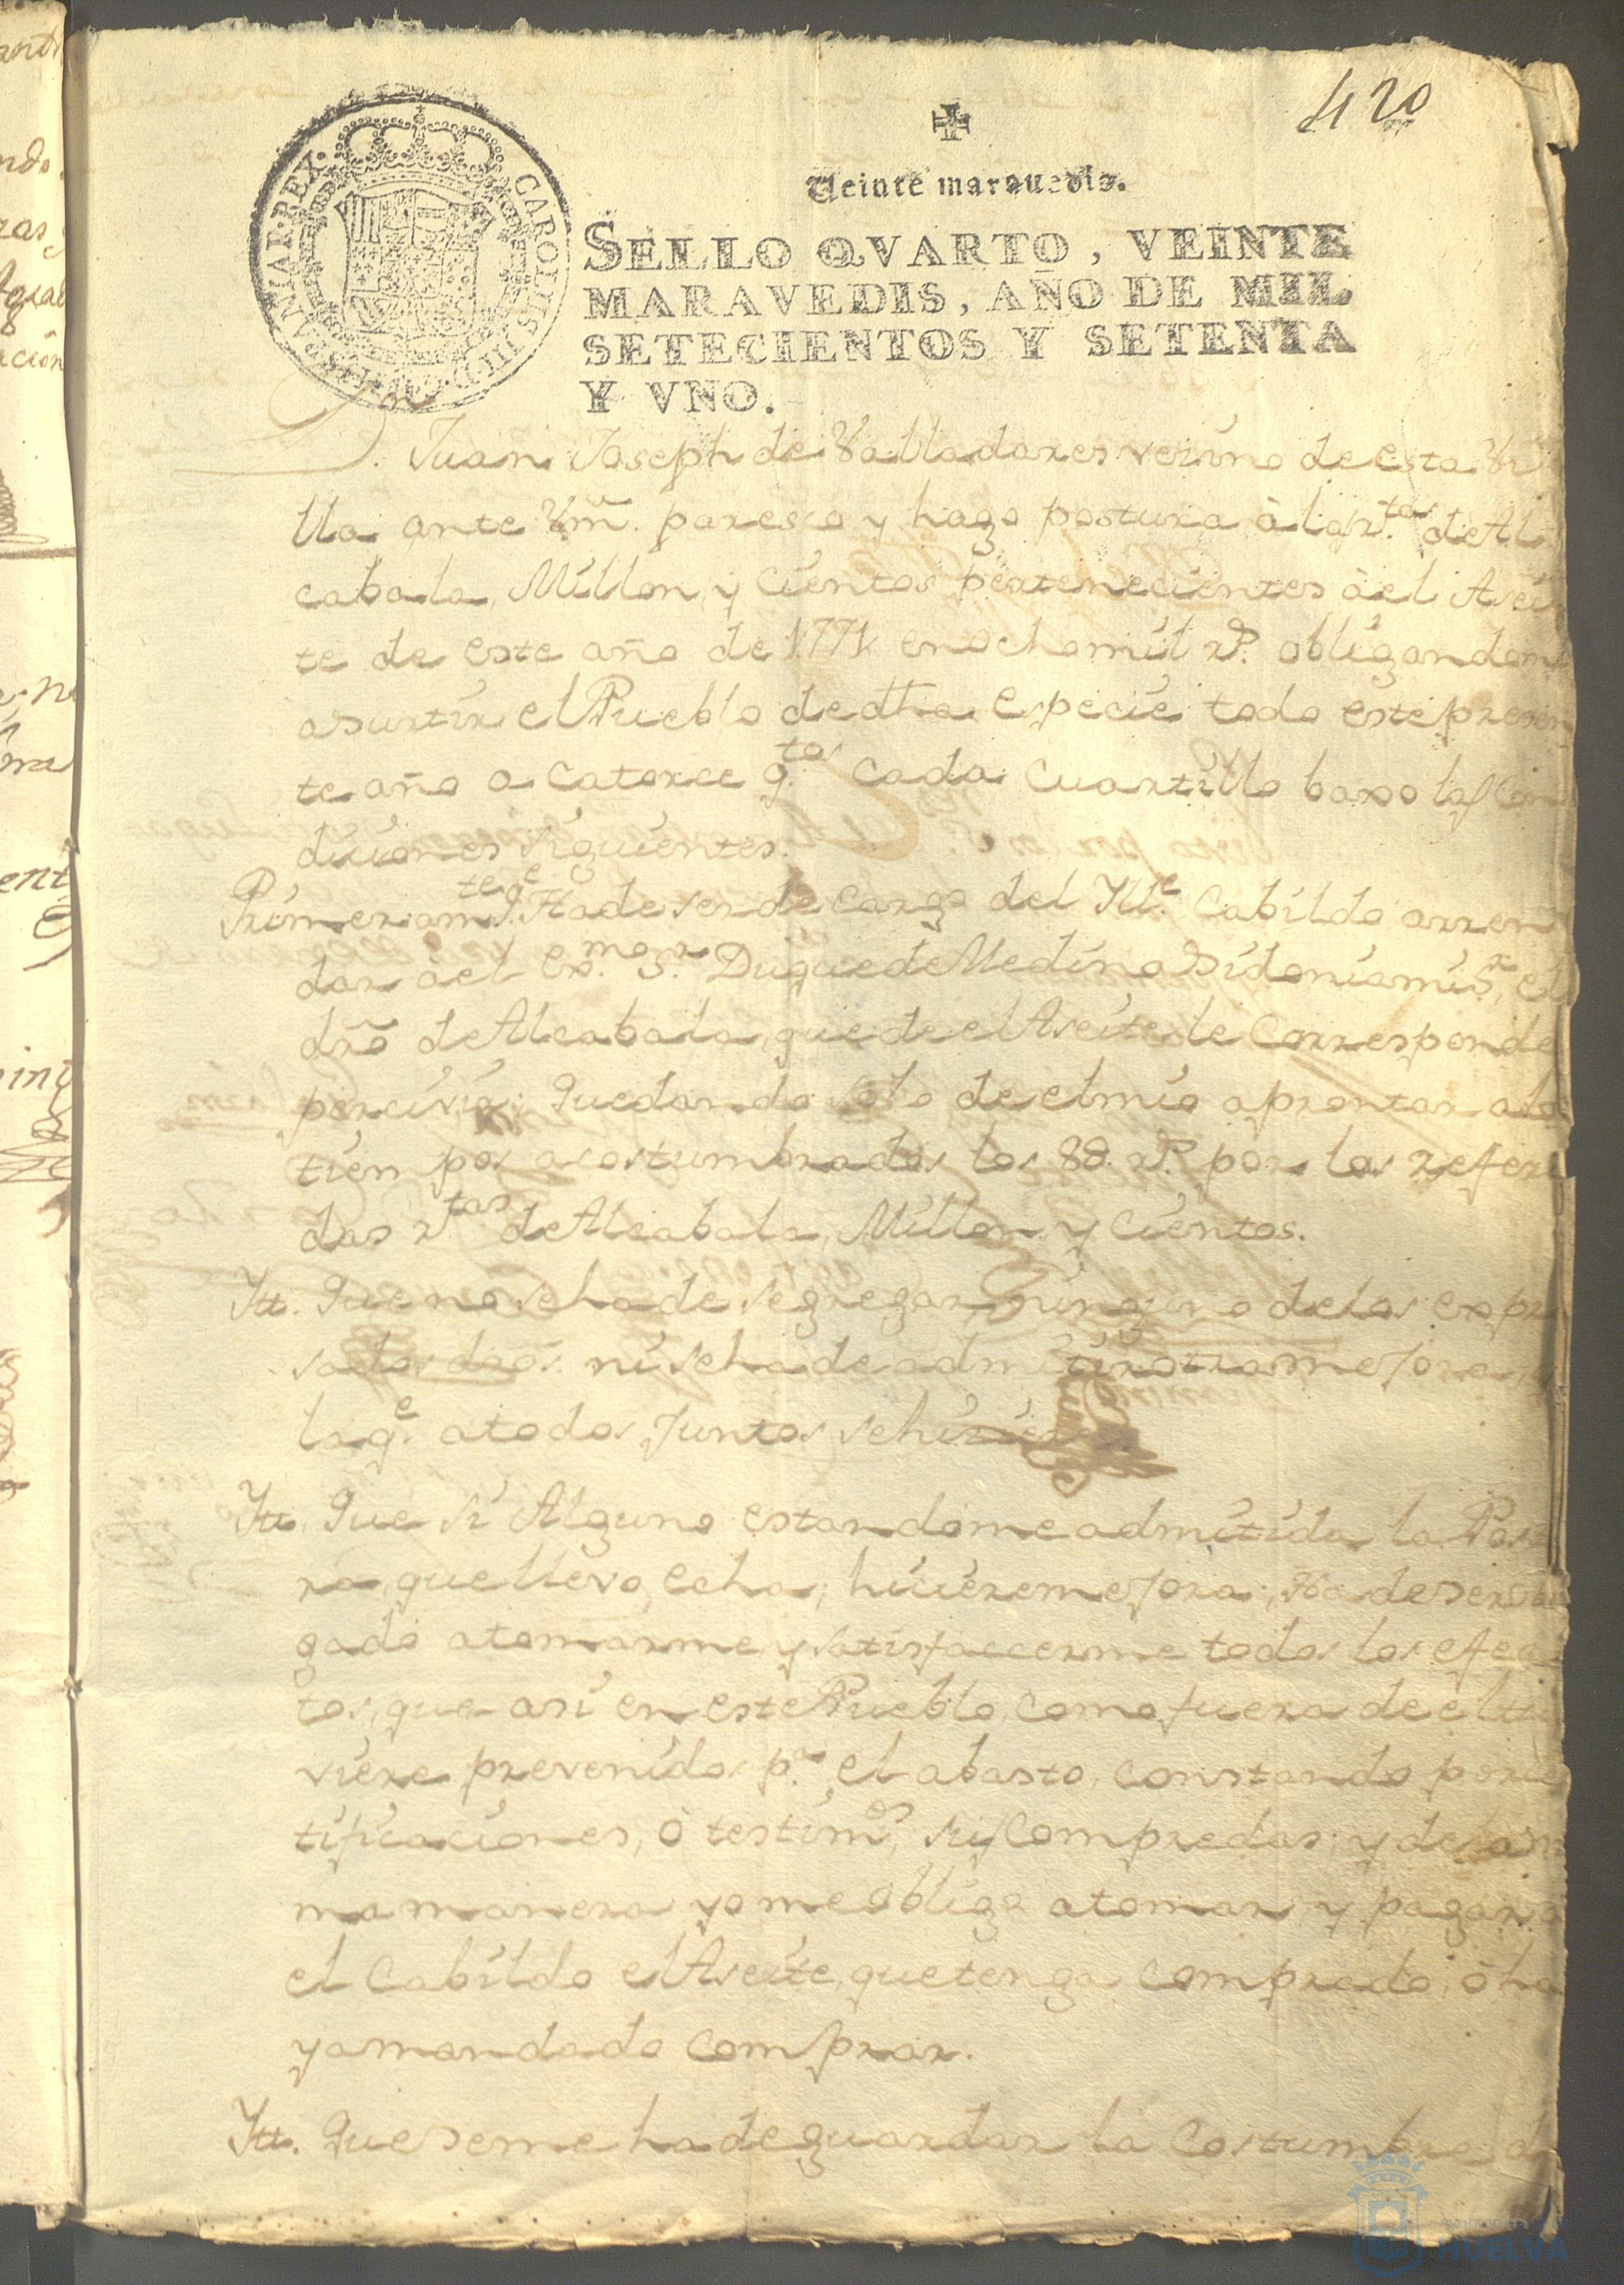 420
Veinte maravedis.
SELLO QVARTO, VEINTE
MARAVEDIS, AÑO DE MIL
SETECIENTOS Y SETENTA
Y VNO.
CAROLUS III D G HISP ET IND REX
Dn. Juan Joseph de Valladares vezino de esta Vi
lla ante Vm. paresco y hago postura à las r.tas de Al
cabala, Millon, y Cientos pertenecientes à el Asei
te de este año de 1771 en ocho mil r.s obligandome
a surtir el Pueblo de dha Especie todo este presen
te año a catorce q.tos cada cuartillo baxo las Con
diciones siguientes.
Primeram.te q.e Ha de ser de cargo del Ill.e Cabildo arren
dar à el Ex.mo S.r Duque de Medina Sidonia mi S.r, el
dro de Alcabala, que de el Aseite le corresponde
percivir; Quedando solo de el mio aprontar a los
tiempos acostumbrados los 8U. r.s por las referi
das r.tas de Alcabala, Millon, y Cientos.
Itt. Que no se ha de segregar ninguno de los expre
sados dros. ni se ha de admitir otra mejora,
la q.e a todos juntos se hiziere
Itt. Que si Alguno estandome admitida la Postu
ra, que llevo echa, hiciere mejora; Ha de ser obli
gado a tomarme, y satisfaccerme todos los efec
tos, que asi en este Pueblo, como fuera de el tu
viere prevenidos p.a el abasto, constando por cer
tificaciones, ò testim.os, sus Compredas; y de la mis
ma manera yo me obligo a tomar, y pagar a
el Cabildo el Aseite, que tenga comprado, ò ha
ya mandado comprar.
Itt. Que se me ha de guardar la costumbre d
HUELVA